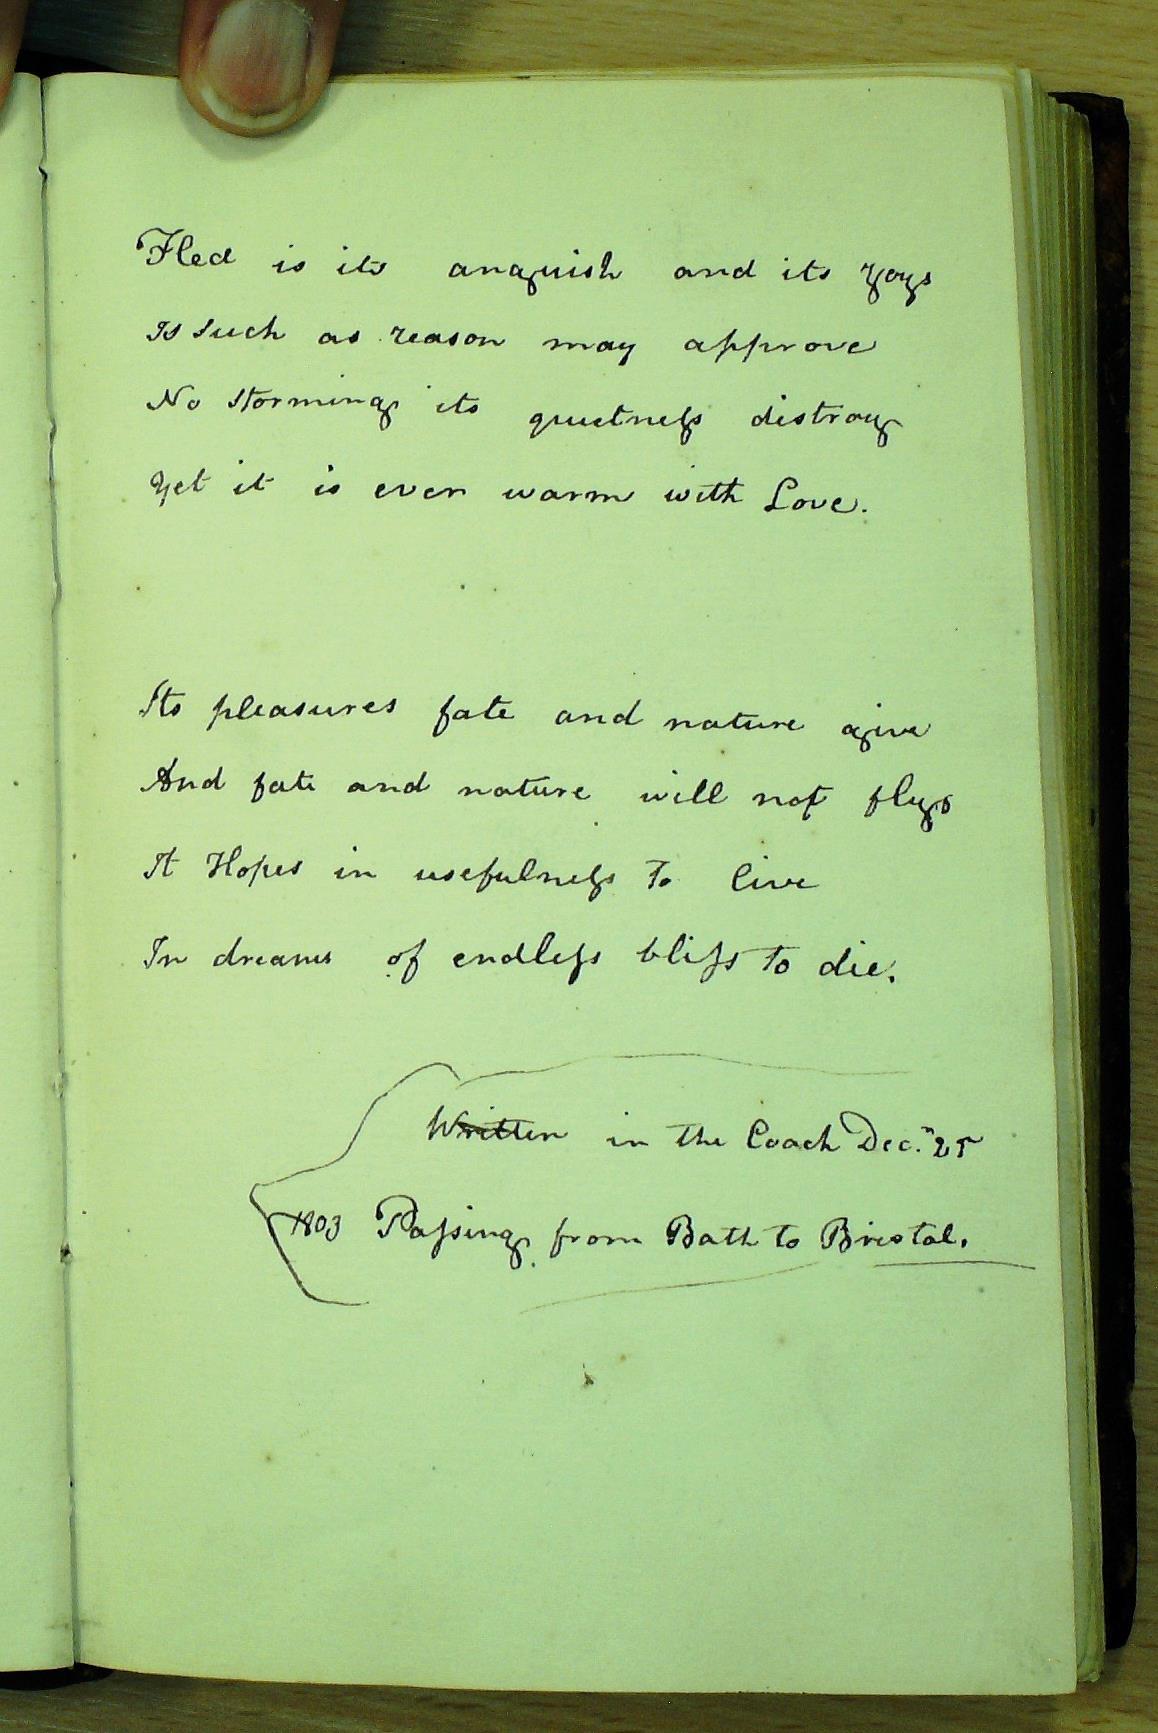 Fled is its anguish and its yoys
Is such as reason may approve
No storming its quietness distroy
Yet it is ever warm with Love.
Its pleasures fate and nature give
And fate and nature will not fly
It Hopes in usefulness to live
In dreams of endless bliss to die.
Written in the Coach Dec.r 25
1803 Passing from Bath to Bristol.